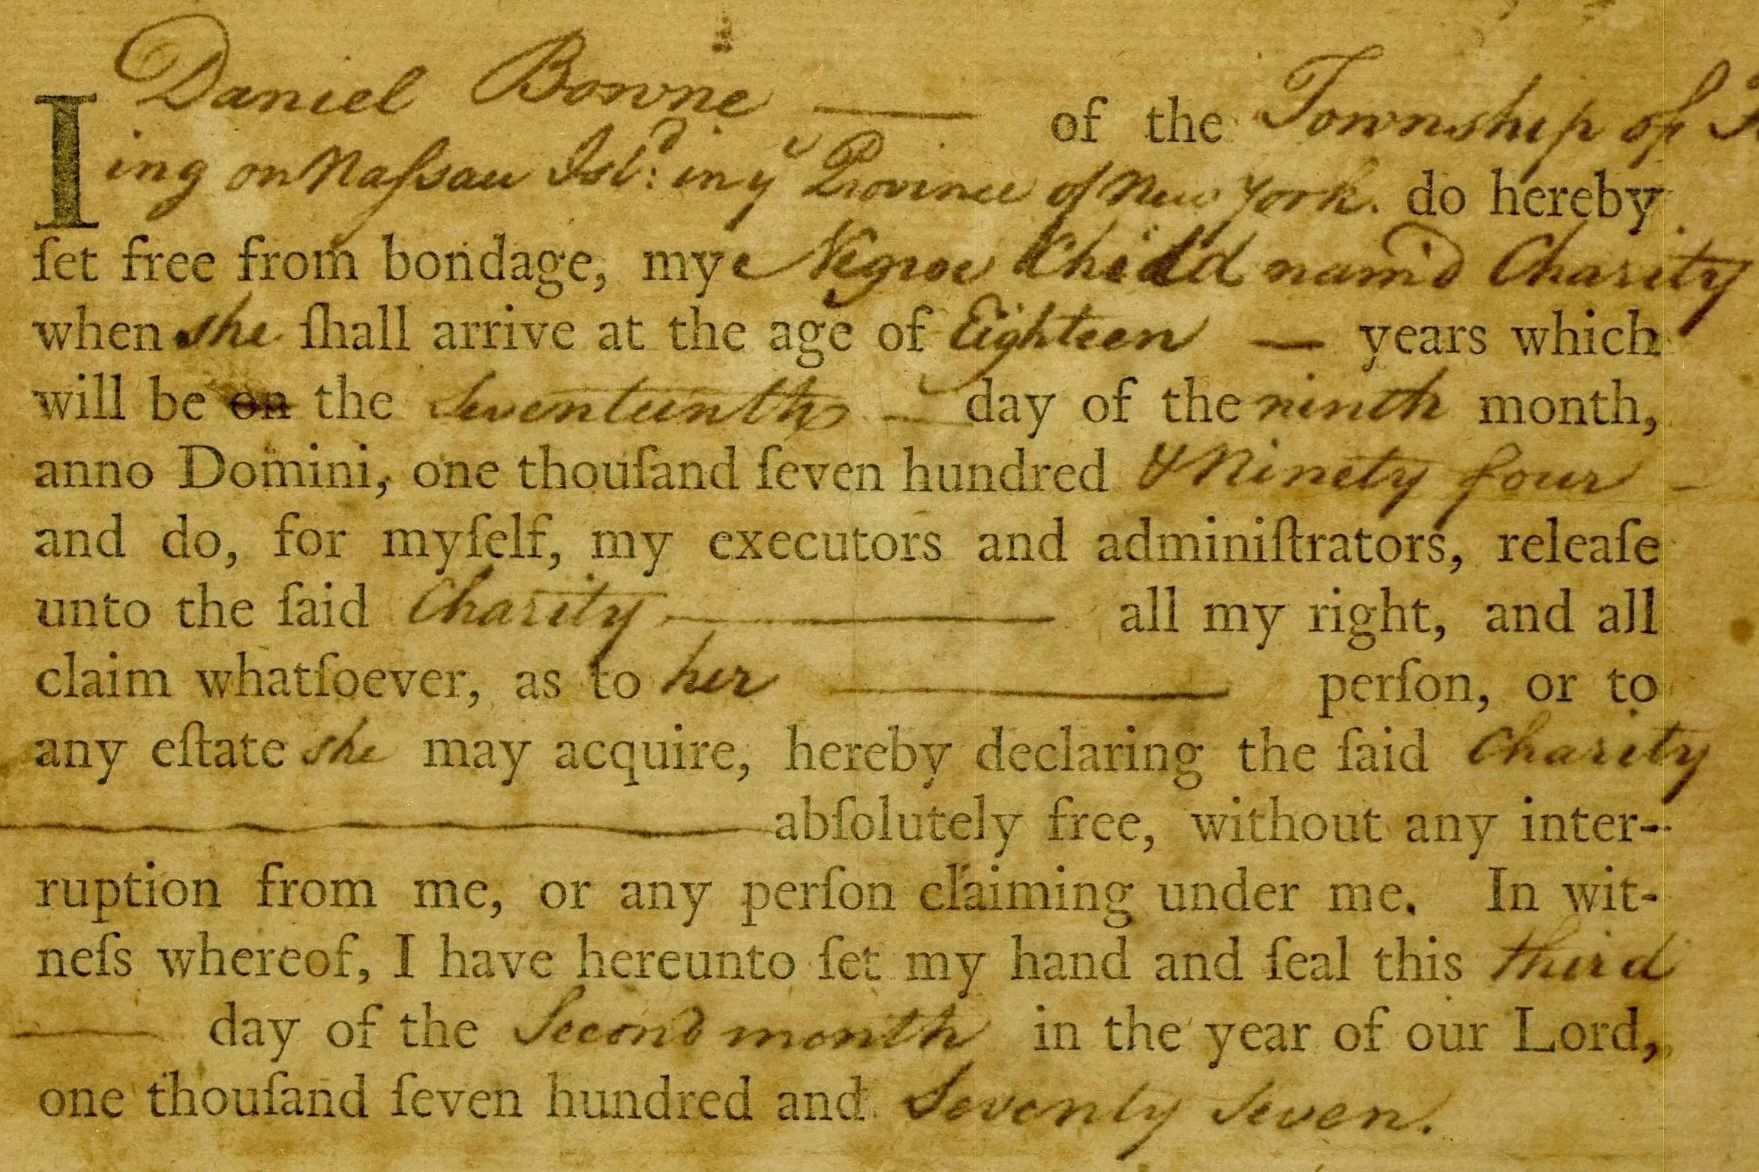 I Daniel Bowne — of the Township of F
ing on Naſsau Isl.d in ye Province of New York. do hereby
ſet free from bondage, my Negroe Child nam'd Charity
when she ſhall arrive at the age of Eighteen — years which
will be on the Seventeenth — day of the ninth month,
anno Domini, one thouſand ſeven hundred & Ninety four —
and do, for myſelf, my executors and adminiſtrators, releaſe
unto the ſaid Charity — all my right, and all
claim whatſoever, as to her — perſon, or to
any eſtate she may acquire, hereby declaring the ſaid Charity
— abſolutely free, without any inter-
ruption from me, or any perſon claiming under me. In wit-
neſs whereof, I have hereunto ſet my hand and ſeal this third
— day of the Second month in the year of our Lord,
one thouſand ſeven hundred and Seventy Seven.